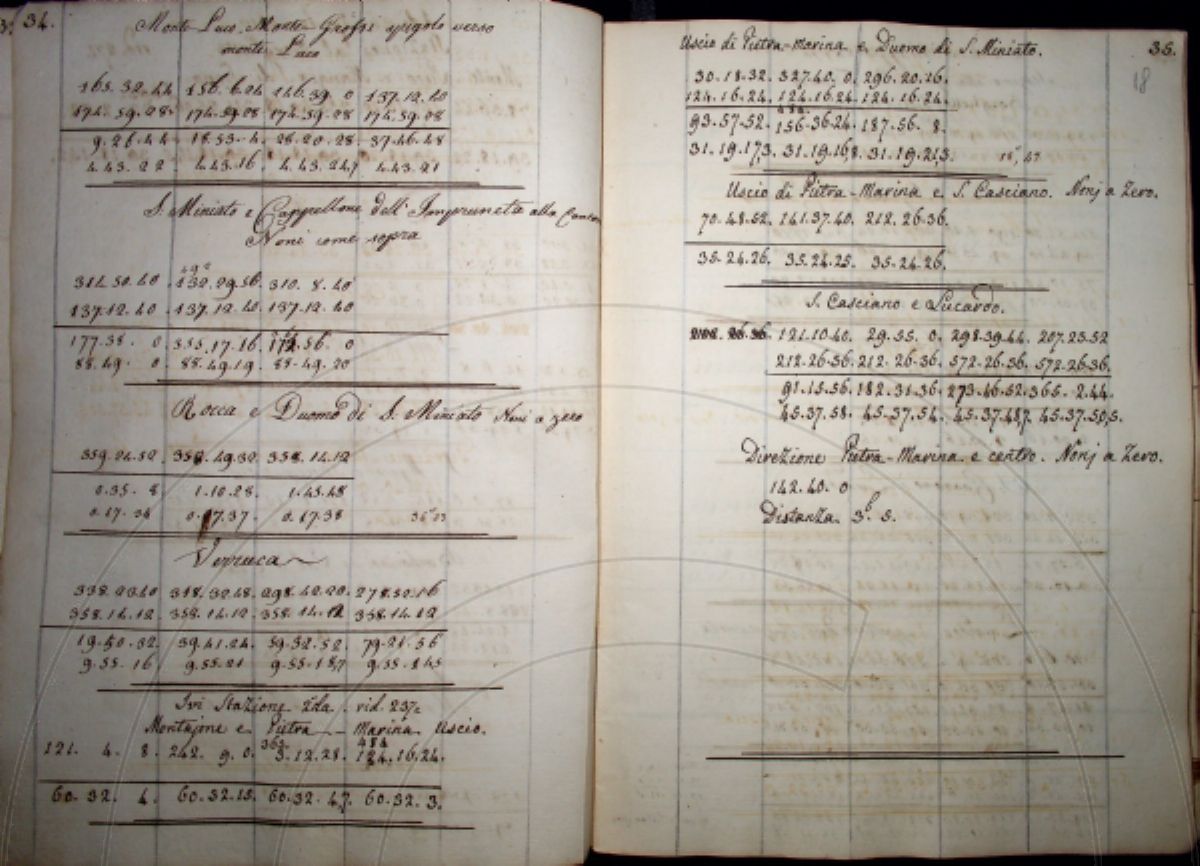 34.
Monte Luco. Monte Grossi spigolo verso
monte Luco
165. 32. 44 156. 6. 04 146. 39. 0 137. 12. 40
174. 59. 28. 174. 59. 08 174. 59. 08 174. 59. 08
9. 26. 44 18. 53. 4. 28. 20. 28. 37. 46. 48
4. 43. 22 4. 43. 16. 4. 43. 24,7 4. 43. 21
S. Miniato e Cappellone dell'Impruneta alla
Noni come sopra
314. 50. 40. 132. 29. 56. 310. 8. 40
137. 12. 40. 137. 12. 40. 137. 12. 40
177. 38. 0 355. 17. 16. 56. 0
88. 49. 0. 88. 49. 19. 88. 49. 20
Rocca e Duomo di S. Miniato Noni a zero
359. 24. 52. 358. 49. 32. 358. 14. 12
0. 35. 8. 1. 10. 28. 1. 45. 48
0. 17. 34 0. 17. 37. 0. 17. 38
Verruca
338. 23. 40 318. 32. 48. 298. 42. 20. 278. 52. 16
358. 14. 12. 358. 14. 12. 358. 14. 12 358. 14. 12
19. 50. 32. 39. 41. 24. 59. 32. 52. 79. 21. 56
9. 55. 16 9. 55. 21 9. 55. 18,7 9. 55. 14,5
Ivi Stazione 2da. vid. 237.
Montajone e Pietra - Marina Uscio.
363. 484
121. 4. 8. 242. 9. 0. 3. 12. 28. 124. 16. 24.
60. 32. 4. 60. 32. 15. 60. 32. 4,7 60. 32. 3.
35.
18
Uscio di Pietra-marina e Duomo di S. Miniato.
30. 18. 32. 327. 40. 0. 296. 20. 16.
124. 16. 24. 124. 16. 24. 124. 16. 24.
484
93. 57. 52. 156. 36. 24. 187. 56. 8.
31. 19. 17,3. 31. 19. 16,8. 31. 19. 21,3.
Uscio di Pietra-Marina e S. Casciano. Nonj a Zero.
70. 48. 52. 141. 37. 40. 212. 26. 36.
35. 24. 26. 35. 24. 25. 35. 24. 26.
S. Casciano e Lucardo.
212. 26. 36. 121. 10. 40. 29. 55. 0. 298. 39. 44. 207. 23. 52
212. 26. 36. 212. 26. 36. 572. 26. 36. 572. 26. 36.
91. 15. 56. 182. 31. 36. 273. 46. 52. 365. 2. 44.
45. 37. 58. 45. 37. 54. 45. 37. 48,7. 45. 37. 50,5.
Direzione Pietra-Marina e centro. Nonj a Zero.
142. 40. 0
Distanza 3. 5.